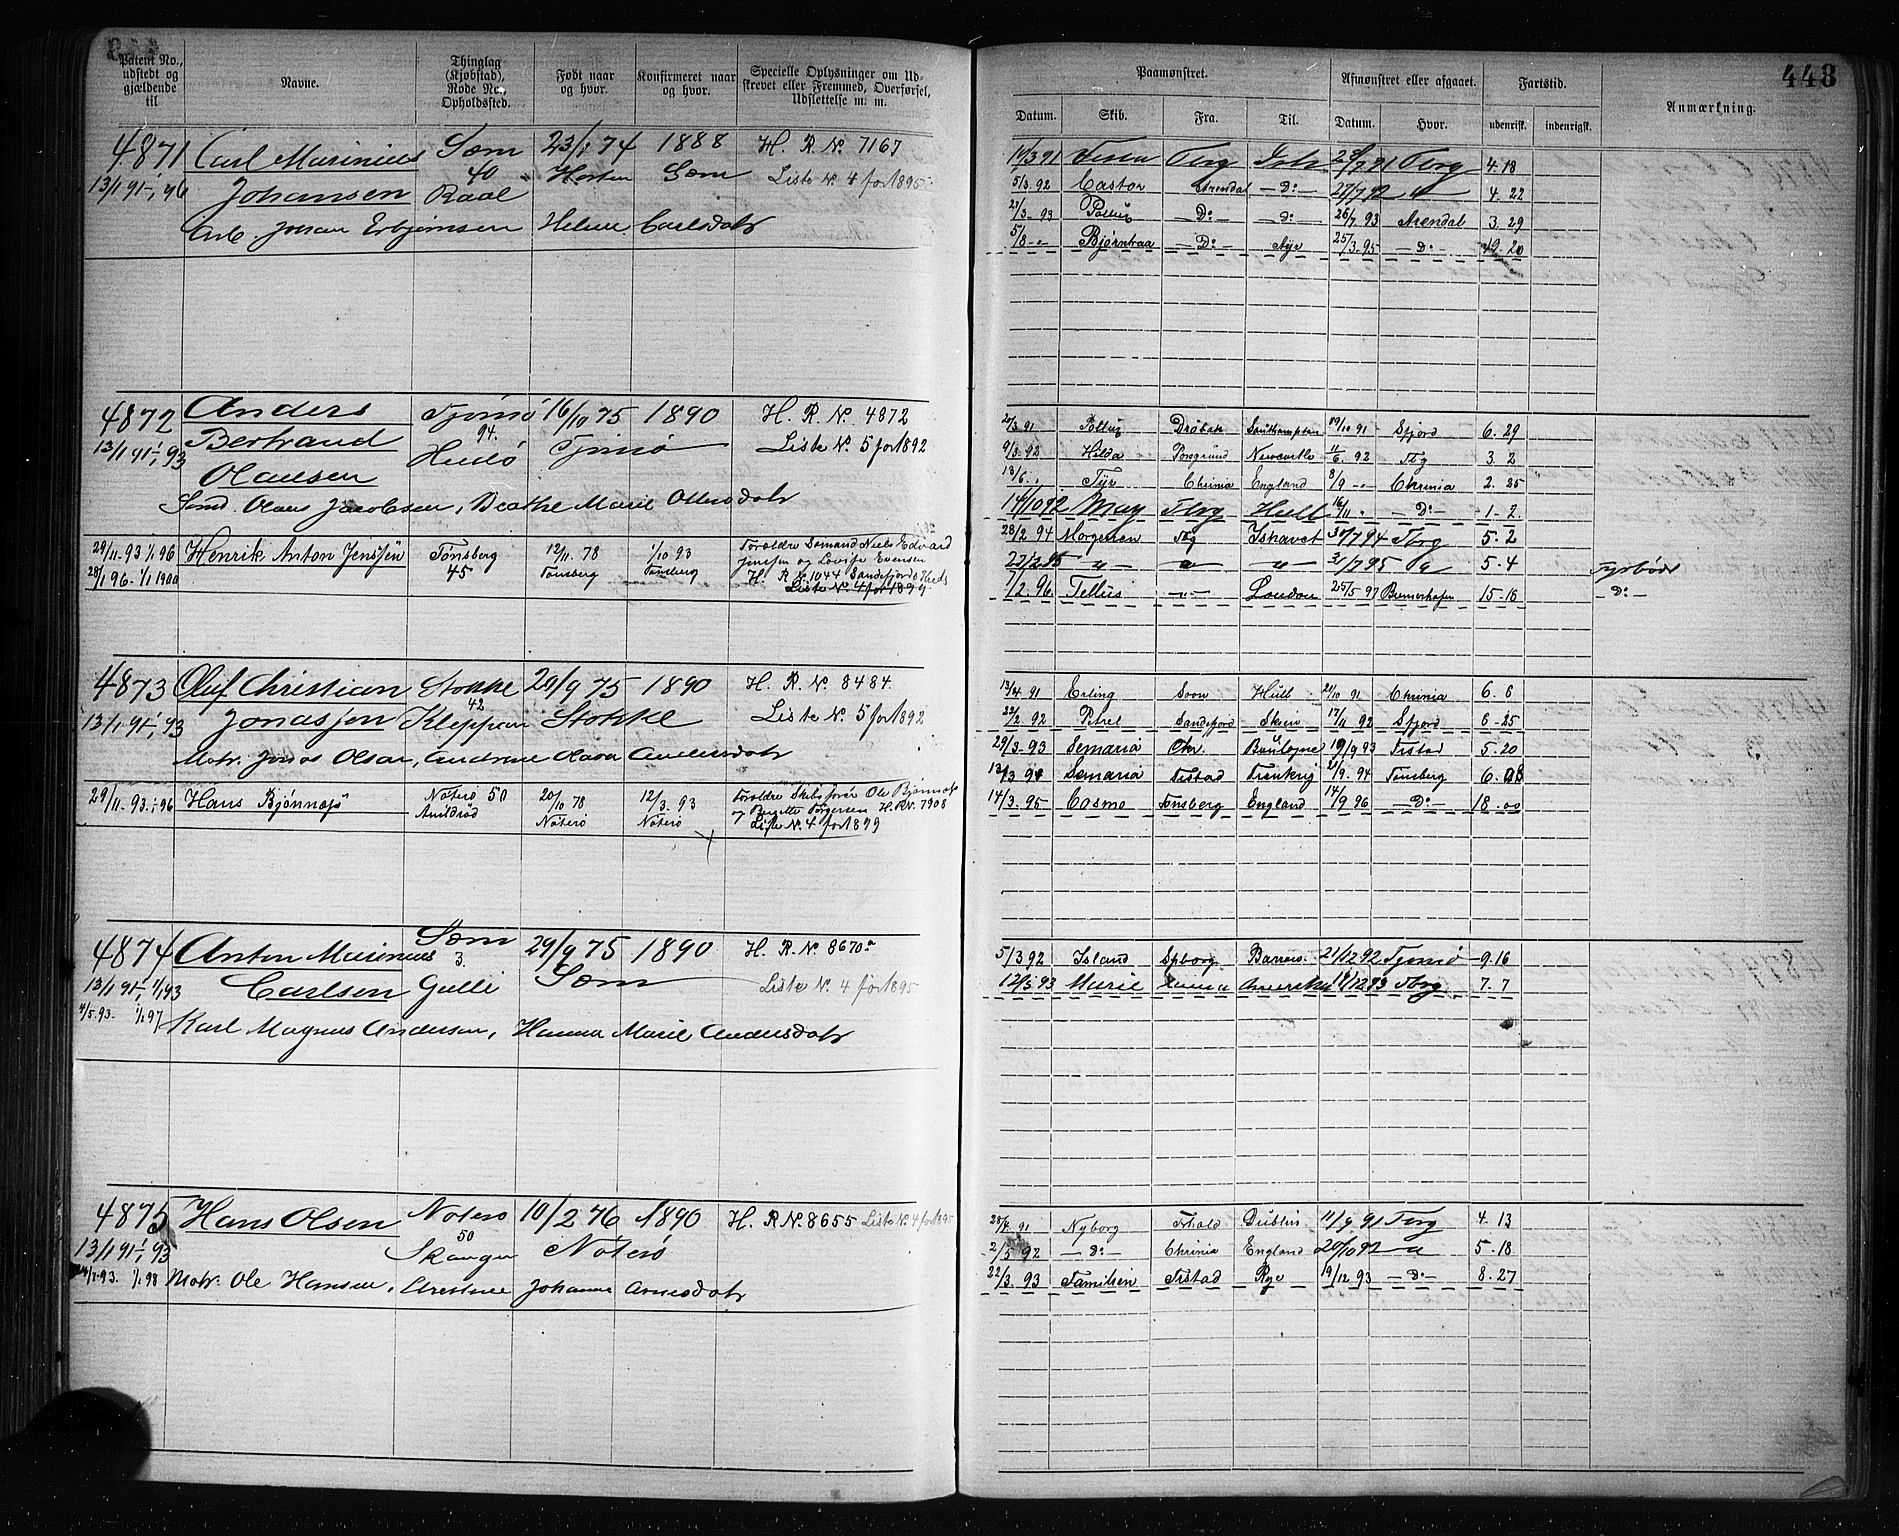 448
Patent No., udstedt og gjældende til
Navne.
Thinglag (Kjøbstad), Rode No., Opholdssted.
Født naar og hvor.
Konfirmeret naar og hvor.
Specielle Oplysninger om Udskrevet eller Fremmed, Overførsel, Udslettelse m. m.
4871 Carl Marinius Sæm 23/1 74 1888 H. R. No. 7167
13/1 91-1/1 96 Johansen 40 Raal Horten Sæm Liste No. 4 for 1895
Arb. Johan Helene Carlsdatr
4872 Anders Tjømø 16/10 75 1890 H. R. No. 4872
13/1 91-1/1 93 Bertrand 94. Tjømø Liste No. 5 for 1892
Olausen
Sømd. Olaus Jacobsen, Beathe Marie Ottersdatr
29/11. 93 1/1 96 Henrik Anton Jenssen Tønsberg 12/11. 78 1/10 93 Forældre Sømand Niels Edvard
28/1 96 - 1/1 1900 45 Tønsberg Tønsberg Jenssen og Lovise Evensen
H. R. No. 1044 Sandefjord
Liste No. 4 for 1899
4873 Oluf Christian Stokke 20/9 75 1890 H. R. No. 8484.
13/1 91-1/1 93 Jonassen 42 Kleppan Stokke Liste No. 5 for 1892
Matr. Jonas Olsen, Andrine Olava Andersdatr
29/11. 93.-1/1 96 Hans Bjønnæs Nøterø 50 20/10 78 12/3. 93 Forældre Skibsfører Ole Bjønnæs
Arildrød Nøterø Nøterø og Birgitte Torgersen H. R. No. 7908
Liste No. 4 for 1899
4874 Anton Marinius Sæm 29/9 75 1890 H. R. No. 8670a
13/1 91-1/1 93 Carlsen 3 Gulli Sæm Liste No. 4 for 1895
4/5. 93. 1/1 97 Karl Magnus Andersen, Hanna Marie Andersdatr
4875 Hans Olsen Nøterø 10/2 76 1890 H. R. No. 8655 Liste No. 4 for 1895
13/1 91-1/1 93 50 Skanger Nøterø
93. 1/1 98 Matr. Ole Hansen, Johanne Arnesdatr
Paamønstret.
Afmønstret eller afgaaet.
Fartstid.
Anmærkning.
Datum. Skib. Fra. Til. Datum. Hvor. udenrisk. indenrigsk.
Tbrg 7 91 Tbrg 4.18
5/3. 92 Castor Arendal -D:- 27/7 92 -"- 4. 22
3. 93 Pollux -D:- -D:- 26/7 93 Arendal 3. 29
5/8 -"- Bjørntraa -D:- Rye 25/3. 95 -D:- 19. 20
20/3. 91 Pollux Drøbak Southampton 19/10 91 Sfjord 6. 29
9/3. 92 Hilda Porsgrund Newcastle 11/6. 92 Tbg 3. 2
13/6. Tyr Chrinia England 8/9 -"- Chrinia 2. 25
14/10 92 May Tbrg Hull 16/11 " -D:- 1-2.
28/2. 94 Morgenen Tbg Ishavet 30/7 94 Tbrg 5. 2
22/2. 95 -"- -"- -"- 31/7 95 -"- 5. 4 Fyrbøder
7/2. 96. Tellus -"- London 25/5. 97 Bremerhafen 15-18 -D:-
13/4 91 Erling Soon Hull 21/10 91 Chrinia 6. 6
22/2. 92 Petrel Sandefjord Skien 17/11 92 Sfjord 6-25
29/3. 93 Semaria Chr. Boulogne 19/9 93 Fistad 5. 20
13/3 94 Semaria Fistad 21/9. 94 Tønsberg 6.
14/3. 95 Cosmo Tønsberg England 14/9 96 -D:- 18.00
5/3 92 Island Spborg 21/12 92 Tjømø 9.16
12/3 93 Marie Amerika 12 93 Tbrg 7. 7
91 Nyborg Fthald Dublin 11/9. 91 Tbrg 4. 13
2/5 92 -D:- Chrinia England 20/10 92 -"- 5. 18
22/3. 93 Familien Fistad Rye 19/12 93 -D:- 8. 27